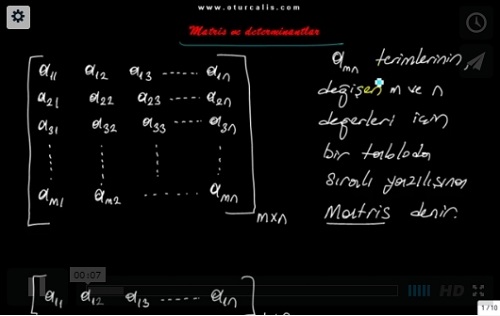 www.oturcalis.com
Matris ve determinantlar
a11 a12 a13 ------ a1n
a21 a22 a23 ------ a2n
a31 a32 a33 ------ a3n
am1 am2 ------ amn
mxn
amn terimlerinin,
değişen m ve n
değerleri için
bir tabloda
sıralı yazılışına
Matris denir.
00:07
a11 a12 a13 ------ a1n
HD
1 / 10